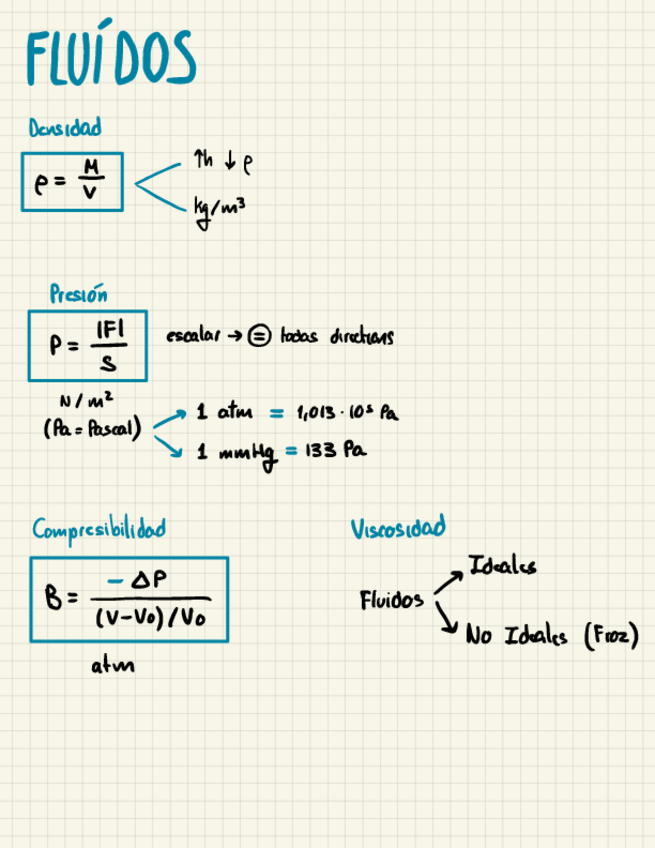 FLUÍDOS
Densidad
ρ = M / V
↑h ↓ρ
kg/m³
Presión
P = |F| / S
escalar → ⊜ todas directions
N/m²
(Pa = Pascal)
1 atm = 1,013 · 10⁵ Pa
1 mmHg = 133 Pa
Compresibilidad
B = - ΔP / (V-Vo)/Vo
atm
Viscosidad
Fluidos
Ideales
No Ideales (Froz)